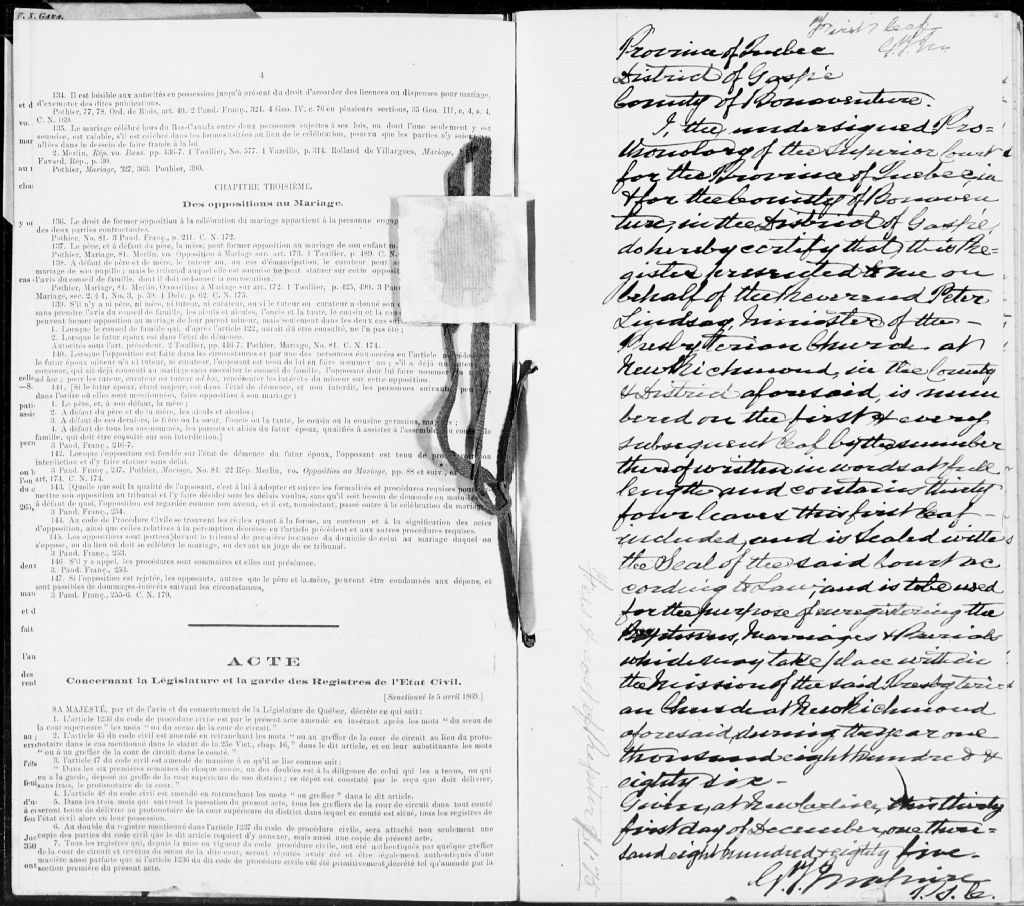 C. N. GARA.
4
134. Il est loisible aux autorités en possession jusqu'à présent du droit d'accorder les licences ou dispenses pour mariage,
d'exempter des dites publications.
Pothier, 77, 78. Ord. de Blois, art. 40. 2 Pand. Franç., 324. 4 Geo. IV, c. 76 en plusieurs sections, 35 Geo. III, c, 4, s. 4,
C. N. 169.
135. Le mariage célébré hors du Bas-Canada entre deux personnes sujettes à ses lois, ou dont l'une seulement y est
soumise, est valable, s'il est célébré dans les formes usitées au lieu de la célébration, pourvu que les parties n'y soient
allées dans le dessein de faire fraude à la loi
2. Merlin, Rép. vo. Bans. pp. 436-7. 1 Toullier, No. 577. 1 Vazeille, p. 314. Rolland de Villargues, Mariage,
Favard, Rép., p. 30.
Pothier, Mariage, 327, 363. Pothier, 390.
CHAPITRE TROISIÈME.
Des oppositions au Mariage.
136. Le droit de former opposition à la célébration du mariage appartient à la personne engag
des deux parties contractantes.
Pothier, No. 81. 3 Pand. Franç., p. 241. C. N. 172.
137. Le père, et à défaut du père, la mère, peut former opposition au mariage de son enfant m
Pothier, Mariage, 81. Merlin, vo Opposition à Mariage sur. art. 173. 1 Toullier, p. 489. C. N.
138. A défaut de père et de mère, le tuteur ou, au cas d'émancipation, le curateur peut a
mariage de son pupille; mais le tribunal auquel elle est soumise ne peut statuer sur cette opposit
l'avis du conseil de famille, dont il doit ordonner la convocation.
Pothier, Mariage, 81. Merlin, Opposition à Mariage sur art. 172. 1 Toullier, p. 425, 490. 3 Pan
Mariage, sec. 2. § 1, No. 3, p. 59. 1 Delv. p. 62. C. N. 175.
139. S'il n'y a ni père, ni mère, ni tuteur, ni curateur, ou si le tuteur ou curateur a donné son
sans prendre l'avis du conseil de famille, les aïeuls et aïeules, l'oncle et la tante, le cousin et la co
peuvent former opposition au mariage de leur parent mineur, mais seulement dans les deux cas su
1. Lorsque le conseil de famille qui, d'après l'article 122, aurait dû être consulté, ne l'a pas été;
2. Lorsque le futur époux est dans l'état de démence.
Autorités sous l'art. précédent. 2 Toullier, pp. 446-7. Pothier, Mariage, No. 81. C. N. 174.
140. Lorsque l'opposition est faite dans les circonstances et par une des personnes énumérées en l'article
le futur époux mineur n'a ni tuteur, ni curateur, l'opposant est tenu de lui en faire nommer un; s'il a déjà
curateur, qui ait déjà consenti au mariage sans consulter le conseil de famille, l'opposant doit lui faire nommer
ad hoc; pour les tuteur, curateur ou tuteur ad hoc, représenter les intérêts du mineur sur cette opposition.
141. [Si le futur époux, étant majeur, est dans l'état de démence, et non interdit, les personnes suivantes peuv
dans l'ordre où elles sont mentionnées, faire opposition à son mariage:
1. Le père, et, à son défaut, la mère;
2. A défaut du père et de la mère, les aïeuls et aïeules;
3. A défaut de ces derniers, le frère ou la sœur, l'oncle ou la tante, le cousin ou la cousine germains, majeurs;
4. A défaut de tous les sus-nommés, les parents et alliés du futur époux, qualifiés à assister à l'assemblée du conseil de
famille, qui doit être consulté sur son interdiction.]
3 Pand. Franç., 246-7.
142. Lorsque l'opposition est fondée sur l'état de démence du futur époux, l'opposant est tenu de
interdiction et d'y faire statuer sans délai.
3 Pand. Franç., 247. Pothier, Mariage, No. 81. 22 Rép. Merlin, vo. Opposition au Mariage, pp. 88 et suiv.,
art, 174. C. N. 174.
143. [Quelle que soit la qualité de l'opposant, c'est à lui à adopter et suivre les formalités et procédures requises pour
mettre son opposition au tribunal et l'y faire décider sous les délais voulus, sans qu'il soit besoin de demande en main
à défaut de quoi, l'opposition est regardée comme non avenu, et il est, nonobstant, passé outre à la célébration du mariage
3 Pand. Franç., 254.
144. Au code de Procédure Civile se trouvent les règles quant à la forme, au contenu et à la signification des actes
d'opposition, ainsi que celles relatives à la péremption décrétée en l'article précédent et aux autres procédures requises.
145. Les oppositions sont portées devant le tribunal de première instance du domicile de celui au mariage duquel on
s'oppose, ou du lieu où doit se célébrer le mariage, ou devant un juge de ce tribunal.
3 Pand. Franç., 253.
146. S'il y a appel, les procédures sont sommaires et elles ont préséance.
3. Pand. Franç., 253.
147. Si l'opposition est rejetée, les opposants, autres que le père et la mère, peuvent être condamnés aux dépens, et
sont passibles de dommages-intérêts suivant les circonstances,
3 Pand. Franç., 255-6. C. N. 179.
ACTE
Concernant la Législature et la garde des Registres de l'Etat Civil.
[Sanctionné le 5 avril 1869.]
SA MAJESTÉ, par et de l'avis et du consentement de la Législature de Québec, décrète ce qui suit:
1. L'article 1236 du code de procédure civile est par le présent acte amendé en insérant après les mots "du sceau de
la cour supérieure" les mots "ou du sceau de la cour de circuit."
2. L'article 45 du code civil est amendé en retranchant les mots "ou au greffier de la cour de circuit au lieu du proto-
notaire dans le cas mentionné dans le statut de la 25e Vict., chap. 16," dans le dit article, et en leur substituant les mots
"ou à un greffier de la cour de circuit dans le comté."
3. l'article 47 du code civil est amendé de manière à ce qu'il se lise comme suit:
"Dans les six premières semaines de chaque année, un des doubles est à la diligence de celui qui les a tenus, ou qui
en a la garde, déposé au greffe de la cour supérieure de son district; ce dépôt est constaté par le reçu que doit délivrer,
sans frais, le protonotaire de la cour."
4. L'article 48 du code civil est amendé en retranchant les mots "ou greffier" dans le dit article.
5. Dans les trois mois qui suivront la passation du présent acte, tous les greffiers de la cour de circuit dans tout comté
seront tenus de délivrer au protonotaire de la cour supérieure du district dans lequel ce comté est situé, tous les registres de
l'état civil alors en leur possession.
6. Au double du registre mentionné dans l'article 1237 du code de procédure civile, sera attaché non seulement une
copie des parties du code civil que le dit article requiert d'y annexer, mais aussi une copie du présent acte.
7. Tous les registres qui, depuis la mise en vigueur du code procédure civile, ont été authentiqués par quelque greffier
de la cour de circuit et revêtus du sceau de la dite cour, seront réputés avoir été et être légalement authentiqués d'une
manière aussi parfaite que si l'article 1236 du dit code de procédure civile eût été primitivement, décrété tel qu'amendé par la
section première du présent acte.
First leaf
Province of Quebec
District of Gaspé
County of Bonaventure.
I, the undersigned Pro=
thonotary of the Superior Court
for the Province of Quebec, in
& for the County of Bonaven
ture, in the District of Gaspé,
do hereby certify that this Re-
gister, presented to me on
behalf of the Reverend Peter
Lindsay, Minister of the -
Presbyterian Church at
New Richmond, in the County
& District aforesaid, is num
bered on the first & every
subsequent leaf by the number
thereof written in words at full
length and contains thirty
four leaves this first leaf
included, and is sealed with
the Seal of the said Court ac
cording to Law; and is to be used
for the purpose of enregistering the
Baptisms, Marriages & Burials
which may take place within
the Mission of the said Presbyteri
an Church at New Richmond
aforesaid, during the year one
thousand eight hundred &
eighty six -
Given, at New Carlisle, this thirty
first day of December, one thou=
sand eight hundred & eighty five.